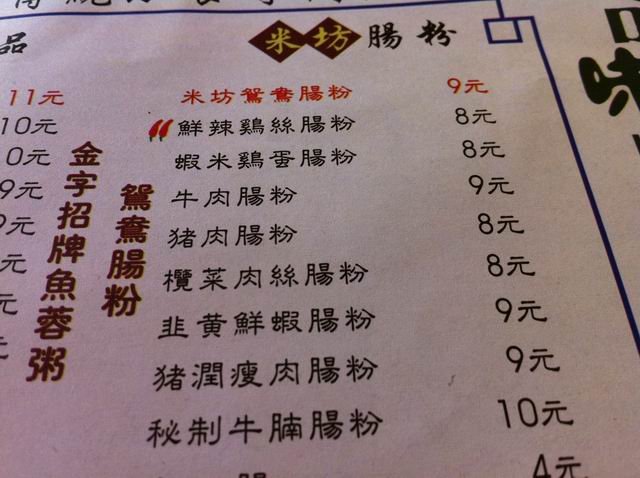 品
11元
10元
0元
9元
9元
元
元
金字招牌魚蓉粥
鴛鴦腸粉
米坊腸粉
米坊鴛鴦腸粉 9元
鮮辣鷄絲腸粉 8元
蝦米鷄蛋腸粉 8元
牛肉腸粉 9元
猪肉腸粉 8元
欖菜肉絲腸粉 8元
韭黄鮮蝦腸粉 9元
猪潤瘦肉腸粉 9元
秘制牛腩腸粉 10元
腸 4元
味